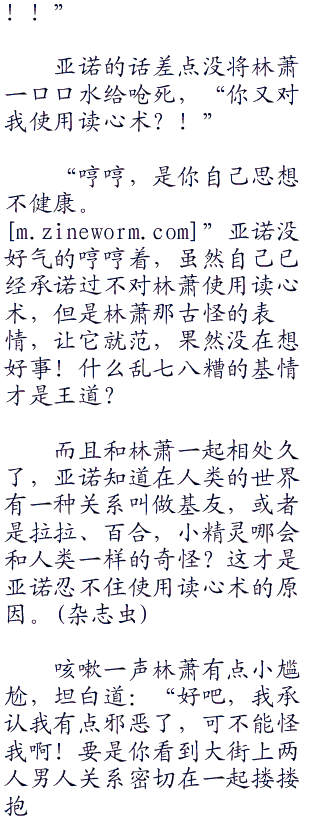 ！！”
亚诺的话差点没将林萧
一口口水给呛死，“你又对
我使用读心术？！”
“哼哼，是你自己思想
不健康。
[m.zineworm.com]”亚诺没
好气的哼哼着，虽然自己已
经承诺过不对林萧使用读心
术，但是林萧那古怪的表
情，让它就范，果然没在想
好事！什么乱七八糟的基情
才是王道？
而且和林萧一起相处久
了，亚诺知道在人类的世界
有一种关系叫做基友，或者
是拉拉、百合，小精灵哪会
和人类一样的奇怪？这才是
亚诺忍不住使用读心术的原
因。(杂志虫)
咳嗽一声林萧有点小尴
尬，坦白道：“好吧，我承
认我有点邪恶了，可不能怪
我啊！要是你看到大街上两
人男人关系密切在一起搂搂
抱